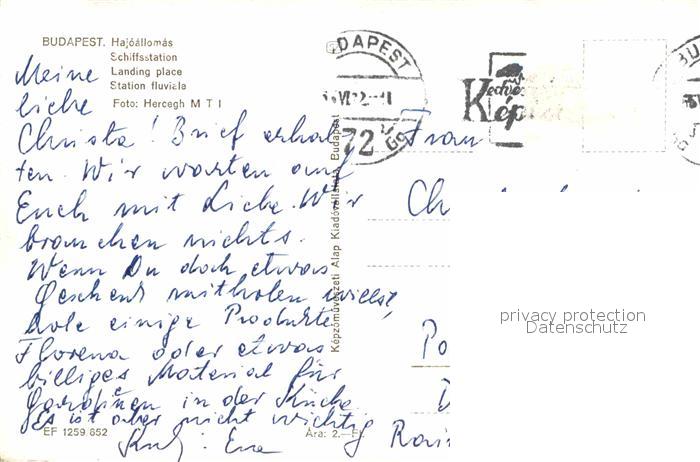 BUDAPEST. Hajóállomás
Schiffsstation
Landing place
Station fluviale
Foto: Hercegh M T I
Meine
liebe
Christa! Brief erhal
ten. Wir warten auf
Euch mit Liebe. Wir
brauchen nichts.
Wenn Du doch etwas
Geschenk mitholen willst,
hole einige Produkte
Florena oder etwas
billiges Material für
Gardinen in der Küche
Es ist aber nicht wichtig
EF 1259 852
Ára: 2.—Ft.
Képzőművészeti Alap Kiadóvállalata Budapest
BUDAPEST
72
Kedvez
Képe
Frau
Ch
Po
privacy protection
Datenschutz